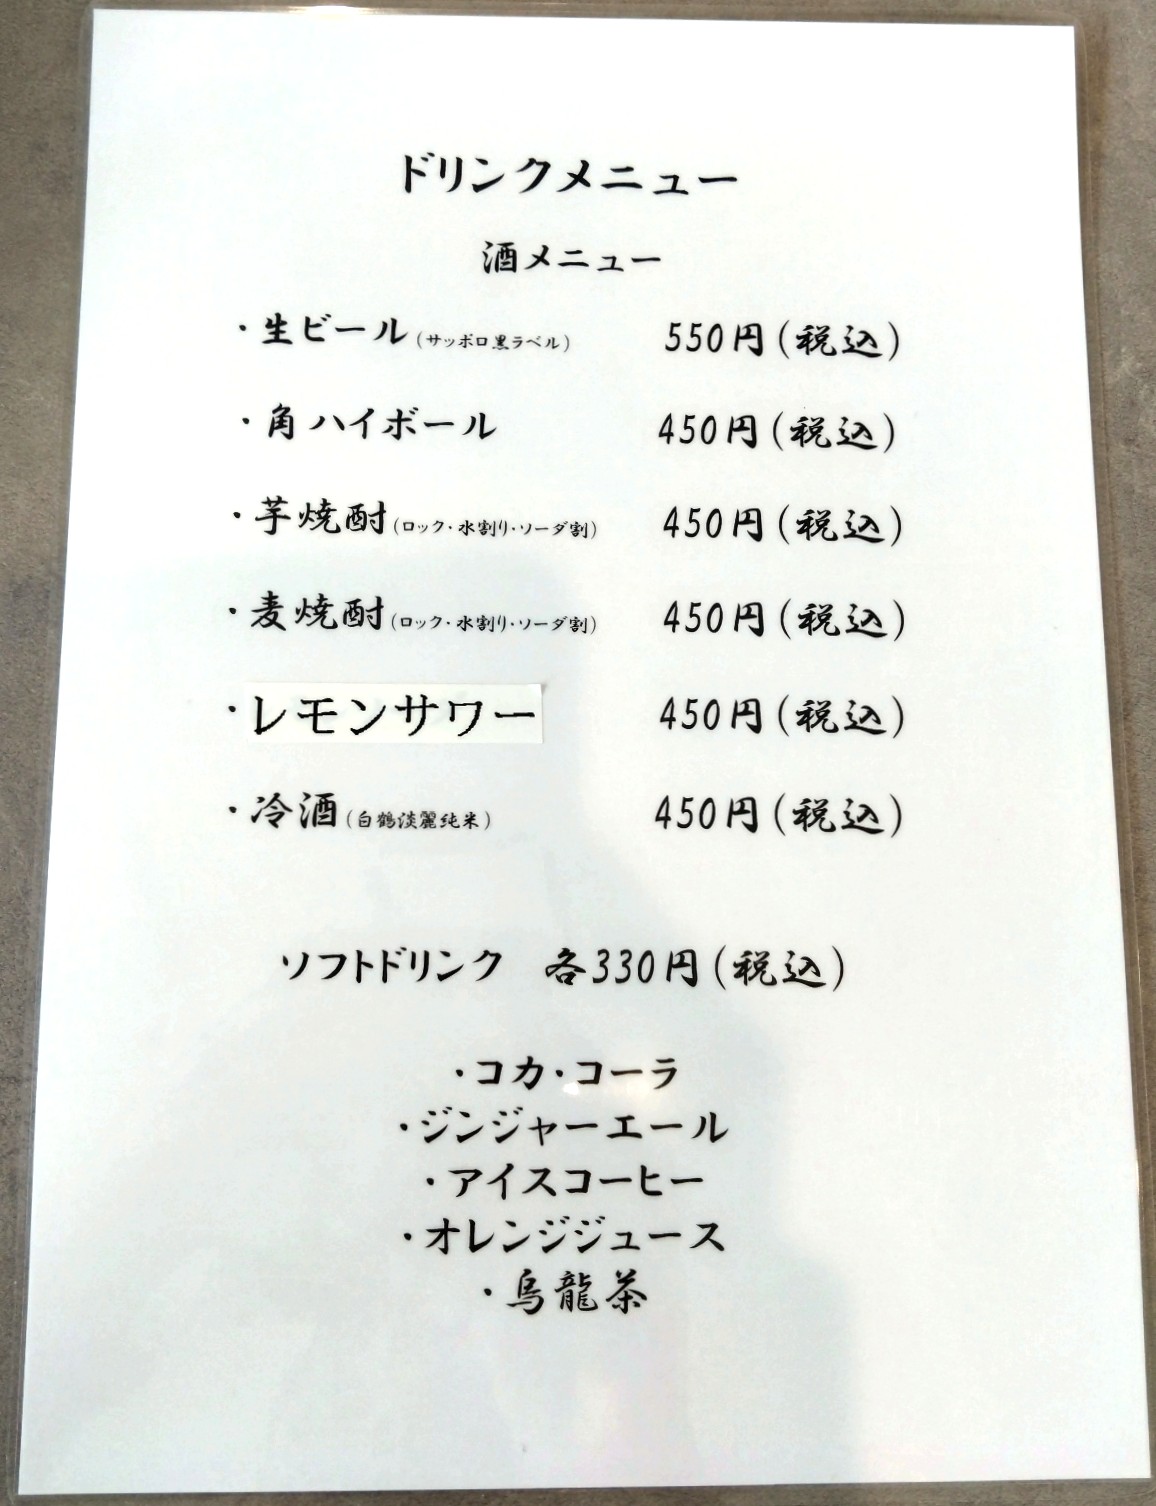 ドリンクメニュー
酒メニュー
・生ビール(サッポロ黒ラベル) 550円(税込)
・角ハイボール 450円(税込)
・芋焼酎(ロック・水割り・ソーダ割) 450円(税込)
・麦焼酎(ロック・水割り・ソーダ割) 450円(税込)
・レモンサワー 450円(税込)
・冷酒(白鶴淡麗純米) 450円(税込)
ソフトドリンク 各330円(税込)
・コカ・コーラ
・ジンジャーエール
・アイスコーヒー
・オレンジジュース
・烏龍茶